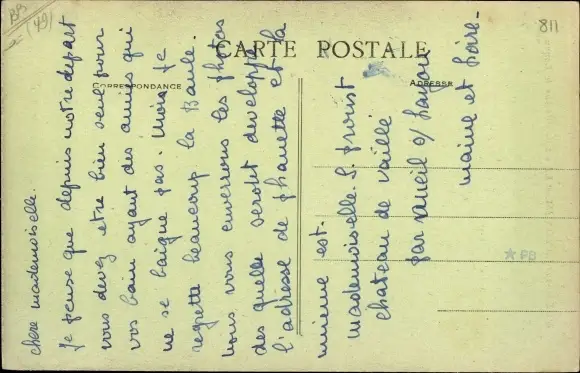 BB
(49)
811
CARTE POSTALE
CORRESPONDANCE
ADRESSE
chere mademoiselle.
Je pense que depuis notre depart
vous devez etre bien seule pour
vos bain ayant des amies qui
ne se baigne pas. Mois je
regrette beaucoup la Baule.
nous vous enverrons les photos
des quelle seront developpe
l'adresse de ghanette et la
mienne est.
mademoiselle. S. proust
chateau de vaillé
par Rueil s/ Layon
maine et Loire-
PB